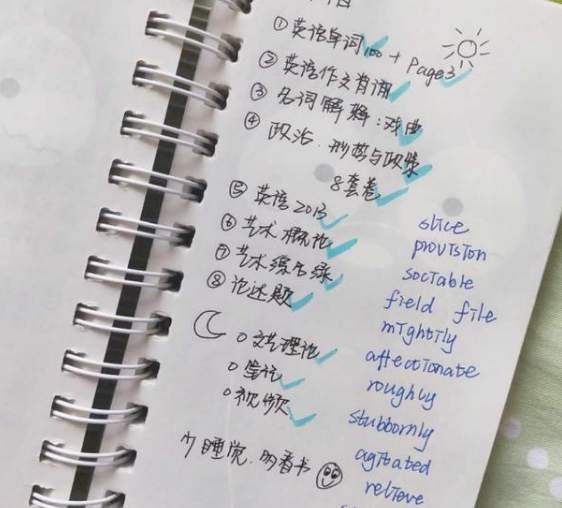 ① 英语单词 100 + Page3
② 英语作文背诵
③ 名词解释:戏曲
④ 政治.形势与政策
8套卷
⑤ 英语2013
⑥ 艺术概论
⑦ 艺术综合
⑧ 论述题
文艺理论
笔记
视频
睡觉.多看书
slice
provision
sociable
field file
mightily
affectionate
roughly
stubbornly
agitated
relieve